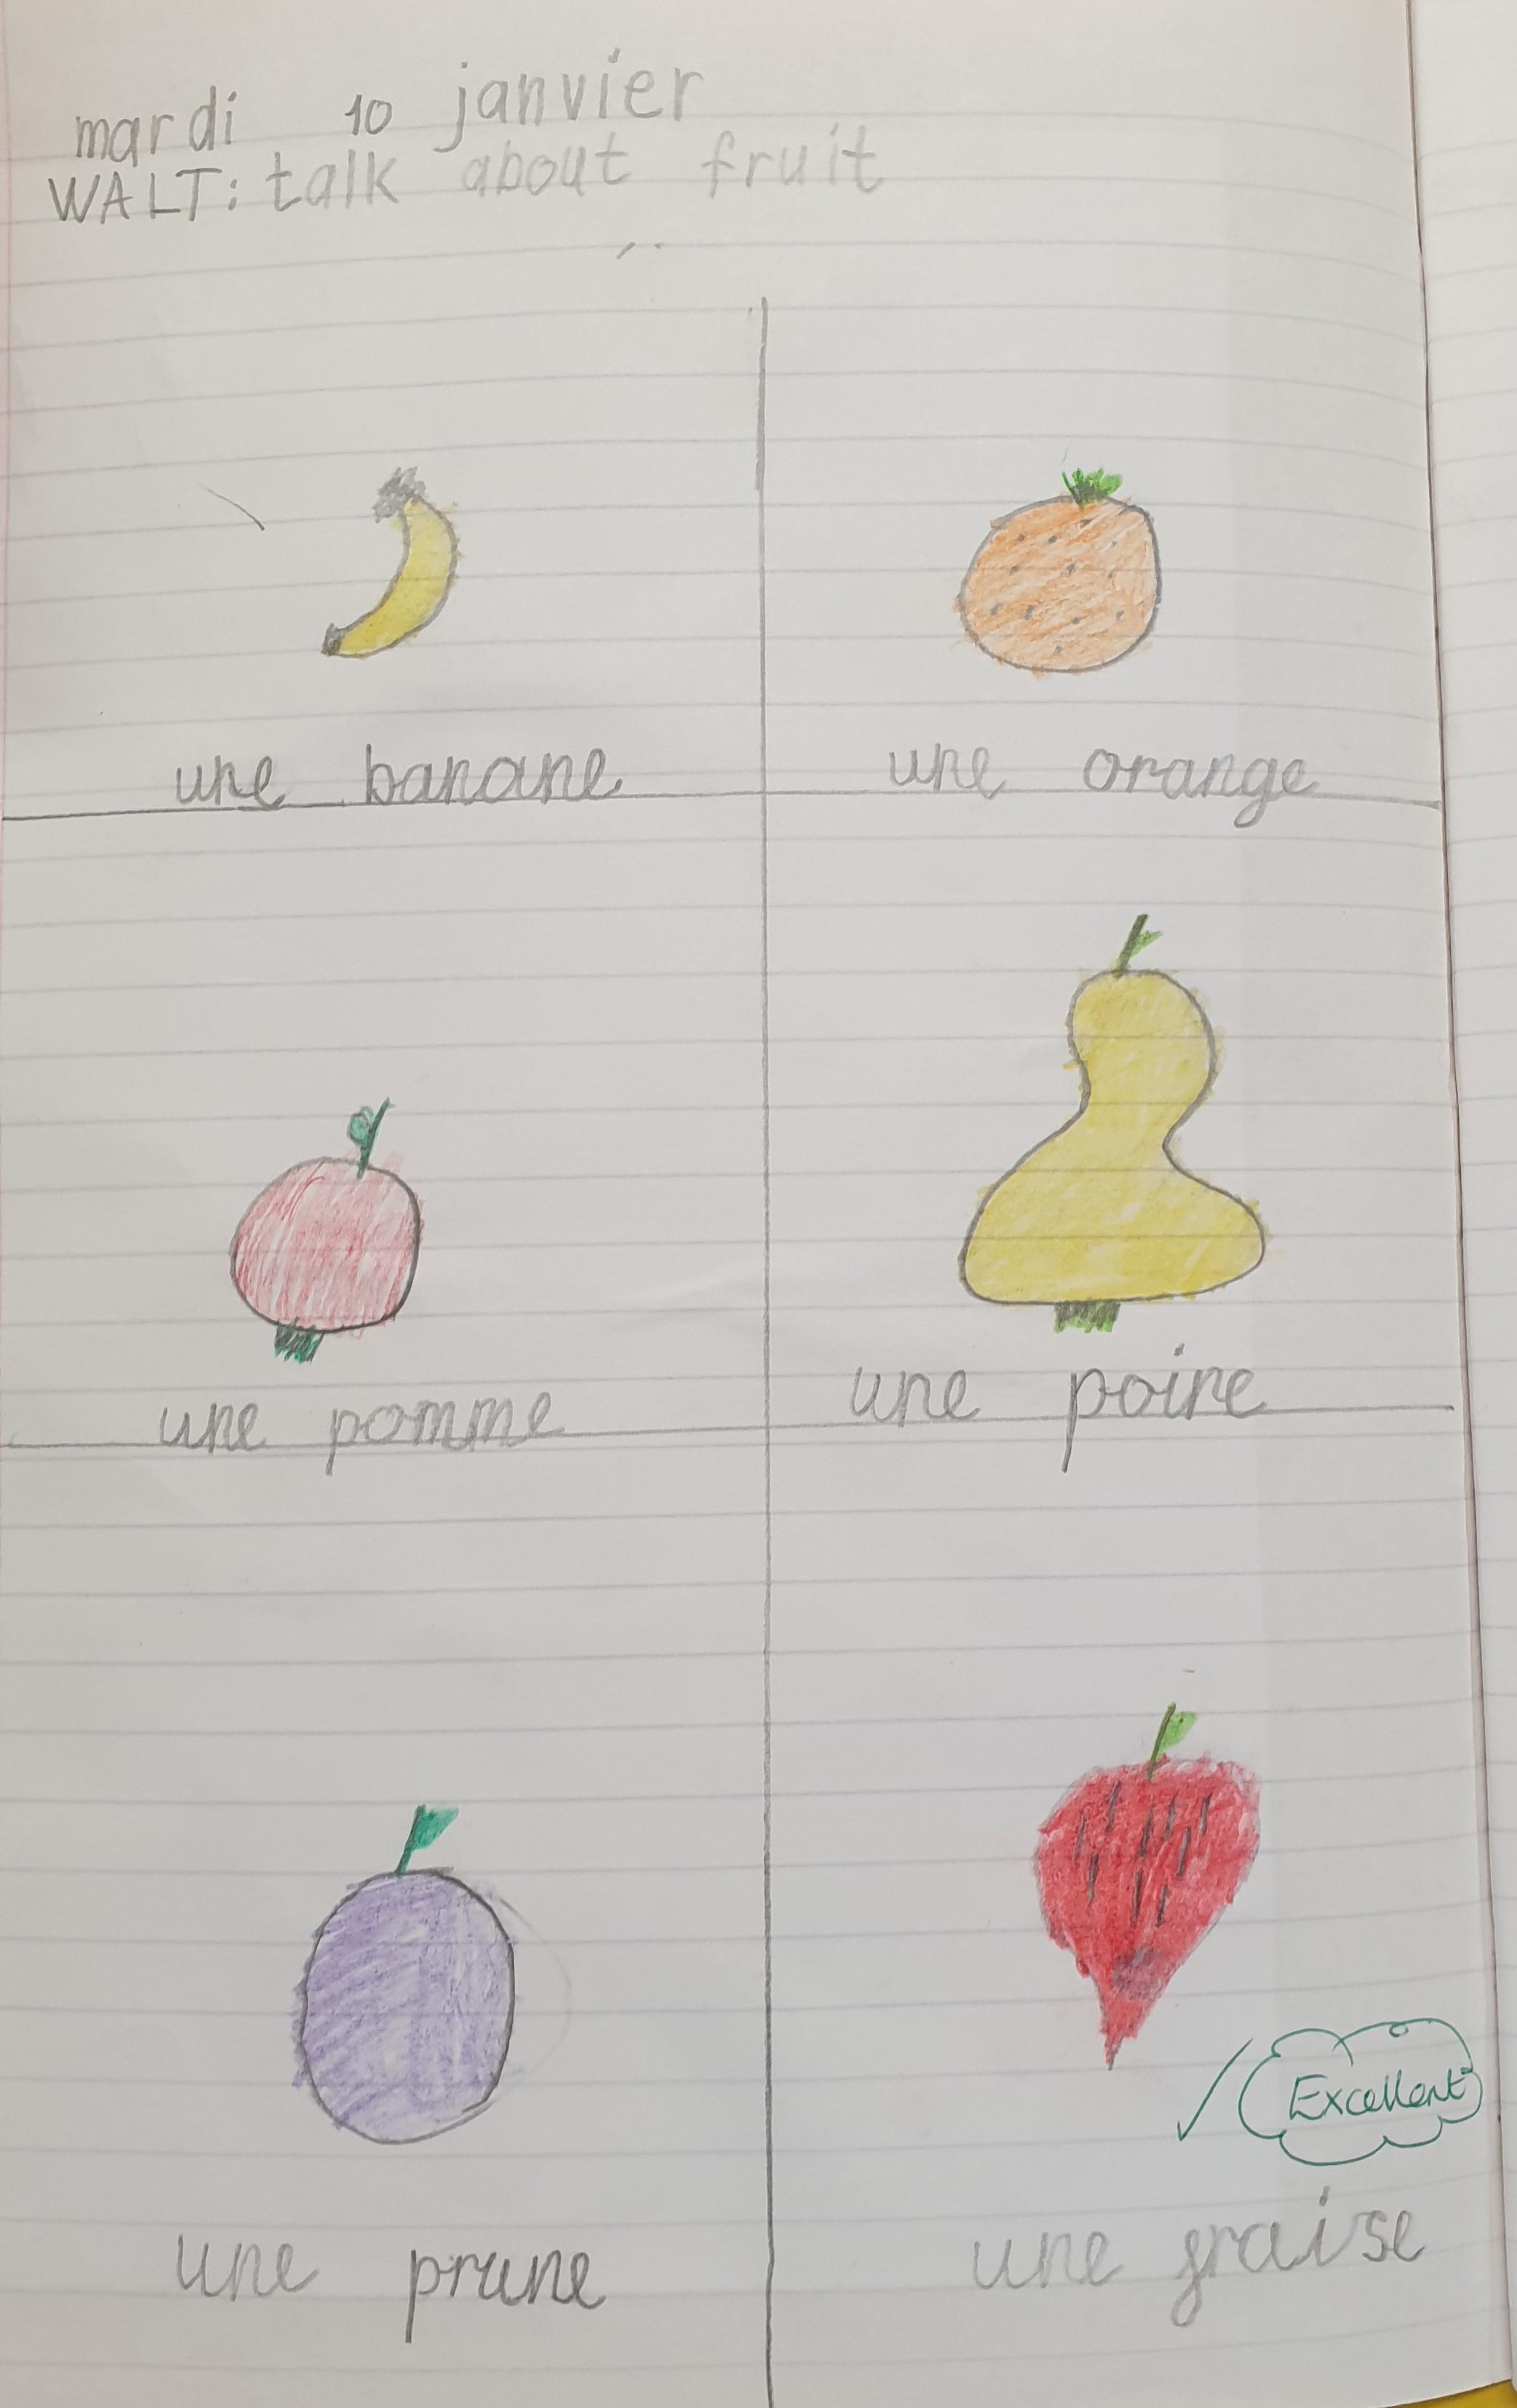 mardi 10 janvier
WALT: talk about fruit
une banane
une orange
une pomme
une poire
une prune
Excellent
une fraise